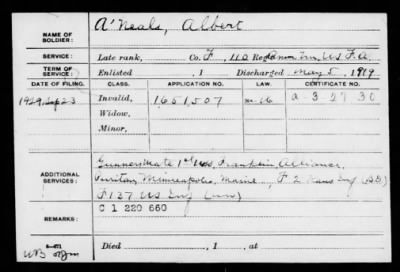 NAME OF SOLDIER: A'Neals, Albert
SERVICE: Late rank, Co. F, 110 Reg Amm Trn, US F.A.
TERM OF SERVICE: Enlisted , 1 Discharged May 5, 1919
DATE OF FILING. CLASS. APPLICATION NO. LAW. CERTIFICATE NO.
1929 Sep 23 Invalid, 1651507 a 3 27 30
Widow,
Minor,
ADDITIONAL SERVICES: Gunners Mate 1st USS. Franklin, Alliance,
Puritan, Minneapolis, Maine, F 2 Kans Inf
F 137 US Inf
REMARKS: C 1 220 660
Died , 1 , at